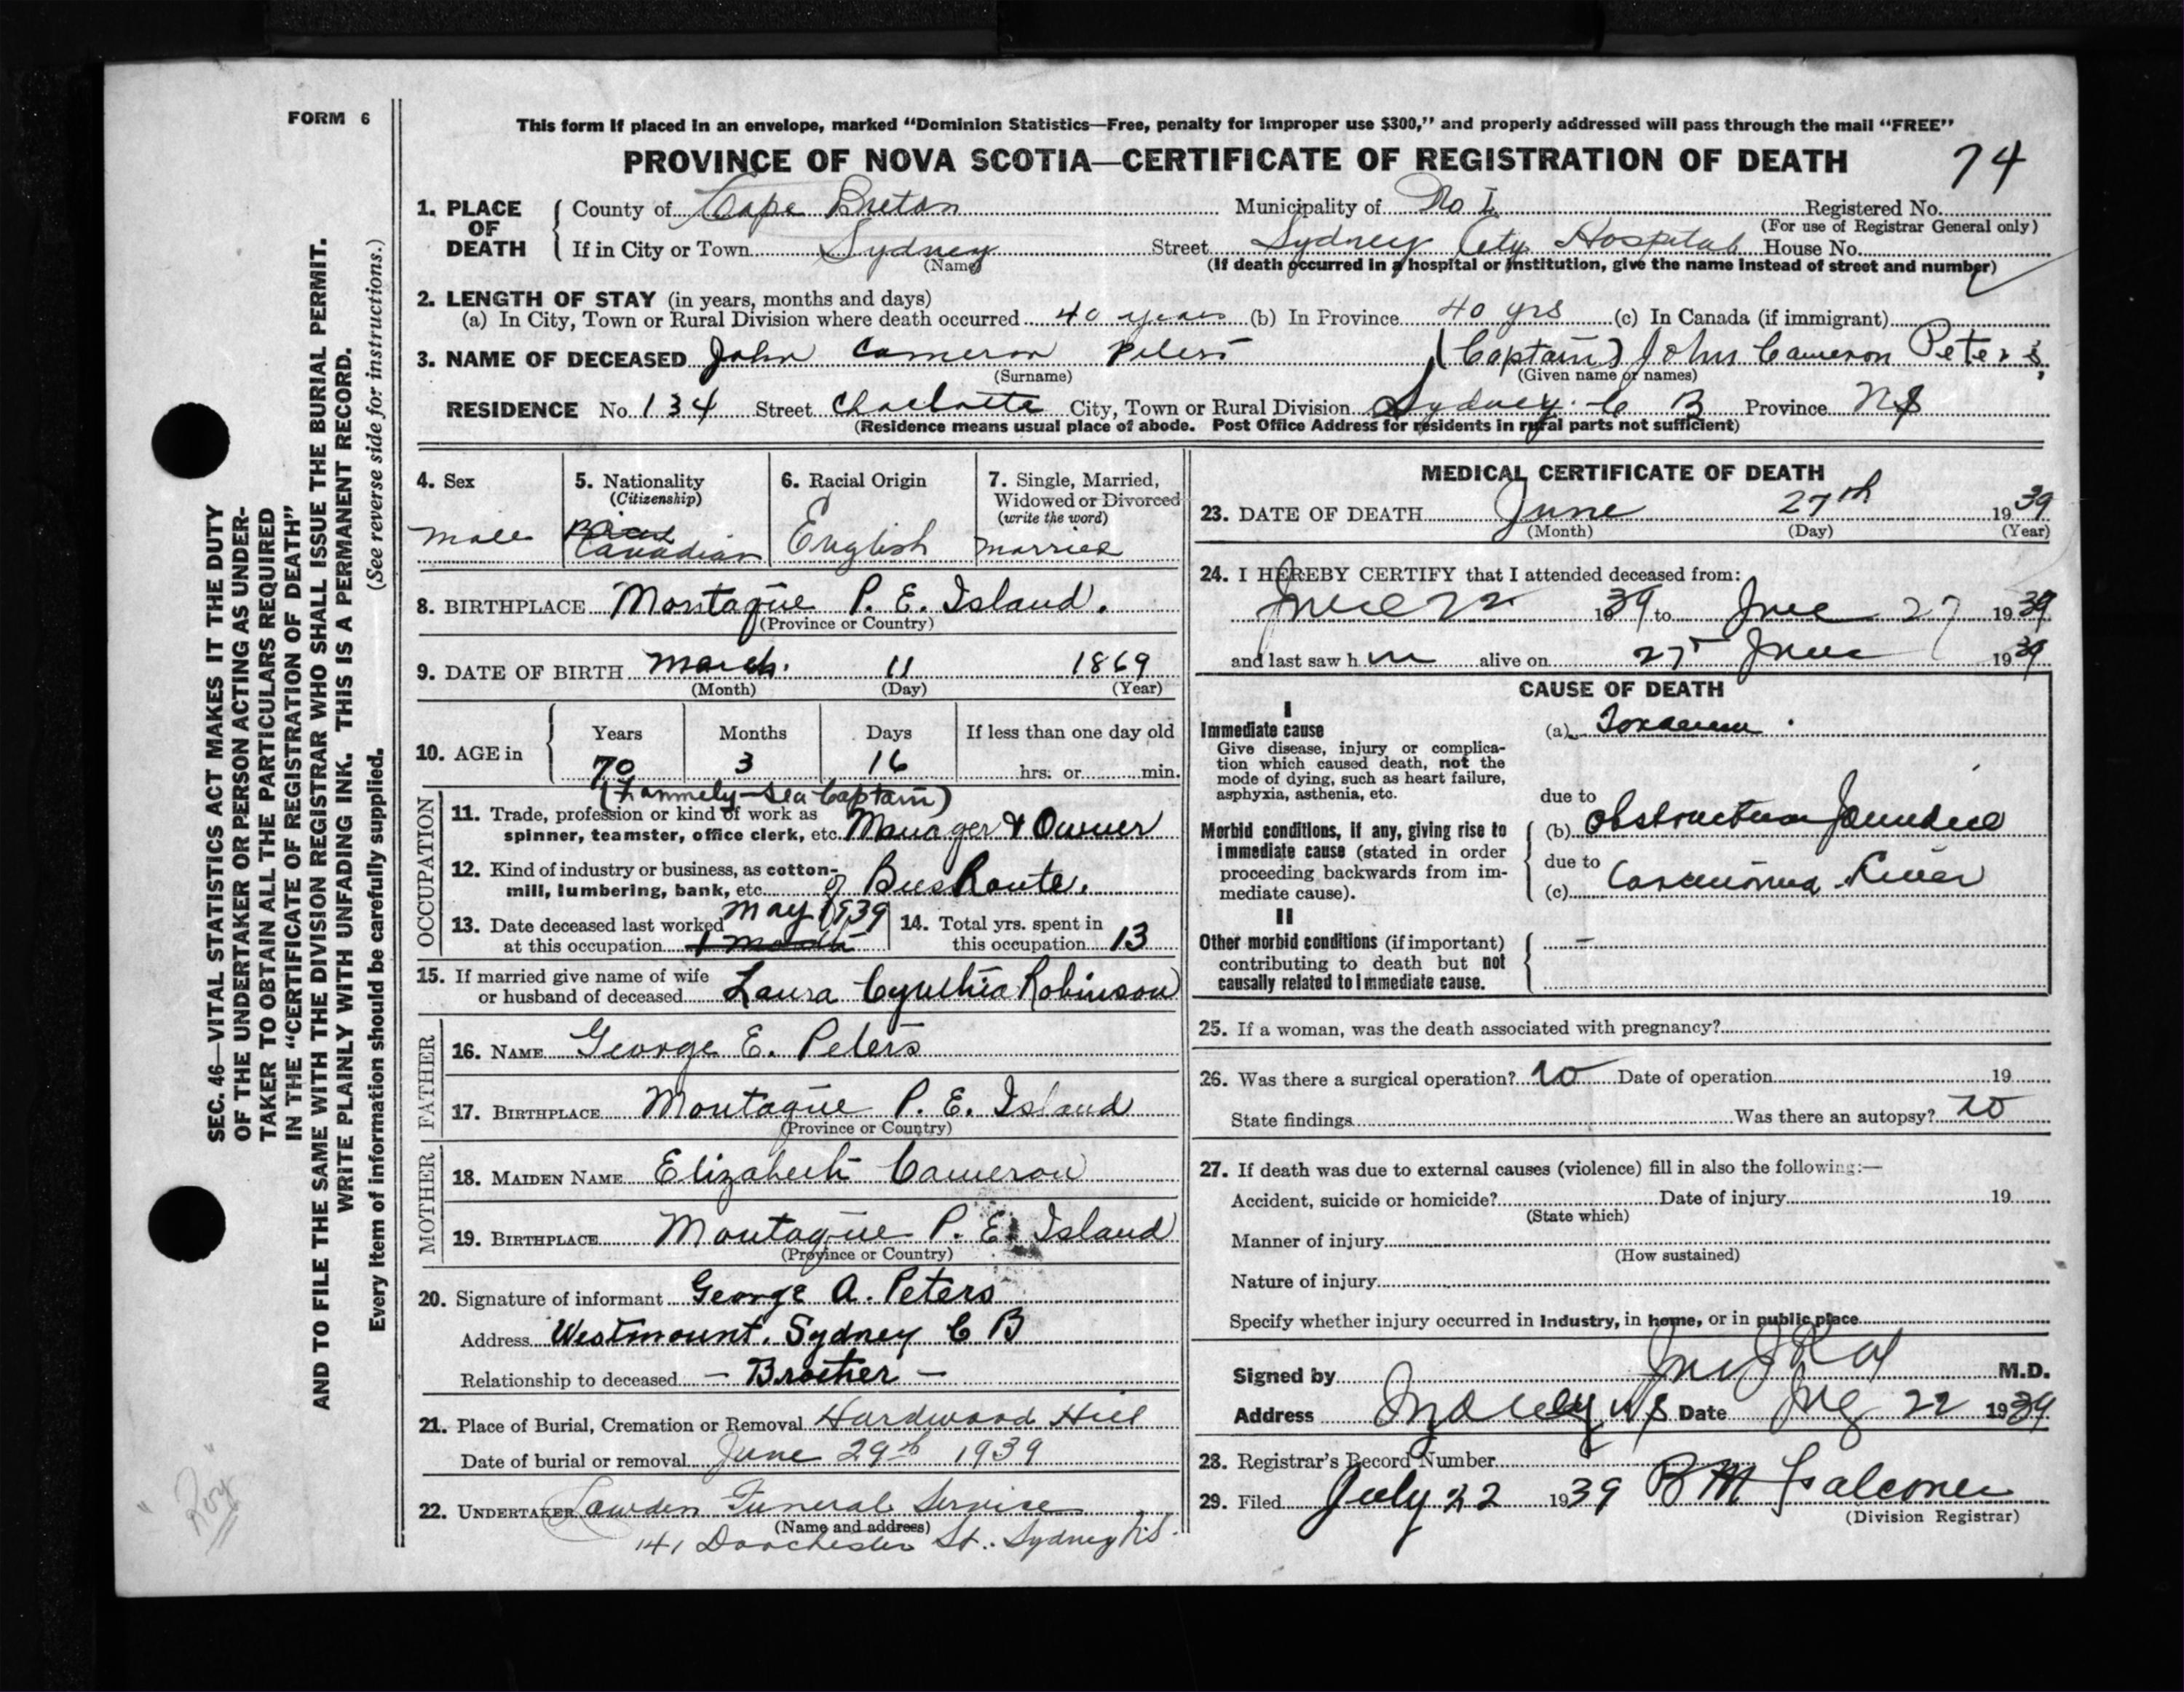 FORM 6
This form if placed in an envelope, marked “Dominion Statistics—Free, penalty for improper use $300,” and properly addressed will pass through the mail “FREE”
PROVINCE OF NOVA SCOTIA—CERTIFICATE OF REGISTRATION OF DEATH 74
1. PLACE OF DEATH
County of Cape Breton Municipality of No 1 Registered No.
(For use of Registrar General only)
If in City or Town Sydney Street Sydney City Hospital House No.
(Name) (If death occurred in a hospital or institution, give the name instead of street and number)
2. LENGTH OF STAY (in years, months and days)
(a) In City, Town or Rural Division where death occurred 40 years (b) In Province 40 yrs (c) In Canada (if immigrant)
3. NAME OF DECEASED John Cameron Peters (Captain) John Cameron Peters,
(Surname) (Given name or names)
RESIDENCE No. 134 Street Charlotte City, Town or Rural Division Sydney. C B Province NS
(Residence means usual place of abode. Post Office Address for residents in rural parts not sufficient)
4. Sex
male
5. Nationality
(Citizenship)
Canadian
6. Racial Origin
English
7. Single, Married,
Widowed or Divorced
(write the word)
married
8. BIRTHPLACE Montague P. E. Island.
(Province or Country)
9. DATE OF BIRTH March. 11 1869
(Month) (Day) (Year)
10. AGE in
Years Months Days If less than one day old
70 3 16 hrs. or min.
OCCUPATION
(Formely Sea Captain)
11. Trade, profession or kind of work as
spinner, teamster, office clerk, etc. Manager & Owner
12. Kind of industry or business, as cotton-
mill, lumbering, bank, etc. of Bus Route.
May 1939
13. Date deceased last worked
at this occupation 1 month
14. Total yrs. spent in
this occupation 13
15. If married give name of wife
or husband of deceased Laura Cynthia Robinson
FATHER
16. NAME George E. Peters
17. BIRTHPLACE Montague P. E. Island
(Province or Country)
MOTHER
18. MAIDEN NAME Elizabeth Cameron
19. BIRTHPLACE Montague P. E. Island
(Province or Country)
20. Signature of informant George A. Peters
Address Westmount. Sydney C B
Relationship to deceased — Brother —
21. Place of Burial, Cremation or Removal Hardwood Hill
Date of burial or removal June 29th 1939
22. UNDERTAKER Lowden Funeral Service
(Name and address)
141 Dorchester St. Sydney N.S.
MEDICAL CERTIFICATE OF DEATH
23. DATE OF DEATH June 27th 1939
(Month) (Day) (Year)
24. I HEREBY CERTIFY that I attended deceased from:
June 22 1939 to June 27 1939
and last saw h im alive on 27 June 1939
CAUSE OF DEATH
I
Immediate cause
Give disease, injury or complica-
tion which caused death, not the
mode of dying, such as heart failure,
asphyxia, asthenia, etc.
(a) Toxaemia
due to
Morbid conditions, if any, giving rise to
immediate cause (stated in order
proceeding backwards from im-
mediate cause).
(b) Obstructive Jaundice
due to
(c) Carcinoma Liver
II
Other morbid conditions (if important)
contributing to death but not
causally related to immediate cause.
—
25. If a woman, was the death associated with pregnancy?
26. Was there a surgical operation? no Date of operation 19
State findings Was there an autopsy? no
27. If death was due to external causes (violence) fill in also the following:—
Accident, suicide or homicide? Date of injury 19
(State which)
Manner of injury
(How sustained)
Nature of injury
Specify whether injury occurred in Industry, in home, or in public place
Signed by M.D.
Address Sydney N S Date 22 1939
28. Registrar's Record Number
29. Filed July 22 1939 B M Falconer
(Division Registrar)
SEC. 46—VITAL STATISTICS ACT MAKES IT THE DUTY
OF THE UNDERTAKER OR PERSON ACTING AS UNDER-
TAKER TO OBTAIN ALL THE PARTICULARS REQUIRED
IN THE “CERTIFICATE OF REGISTRATION OF DEATH”
AND TO FILE THE SAME WITH THE DIVISION REGISTRAR WHO SHALL ISSUE THE BURIAL PERMIT.
WRITE PLAINLY WITH UNFADING INK. THIS IS A PERMANENT RECORD.
Every item of information should be carefully supplied. (See reverse side for instructions.)
"Roy"